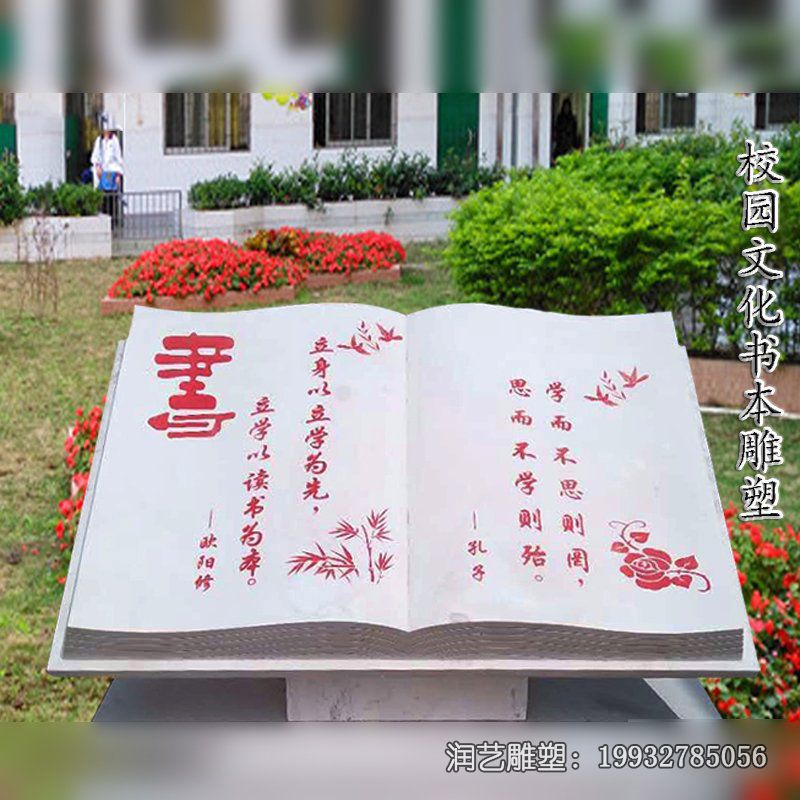 校园文化书本雕塑
書
立身以立学为先，
立学以读书为本。
—欧阳修
学而不思则罔，
思而不学则殆。
—孔子
润艺雕塑：19932785056